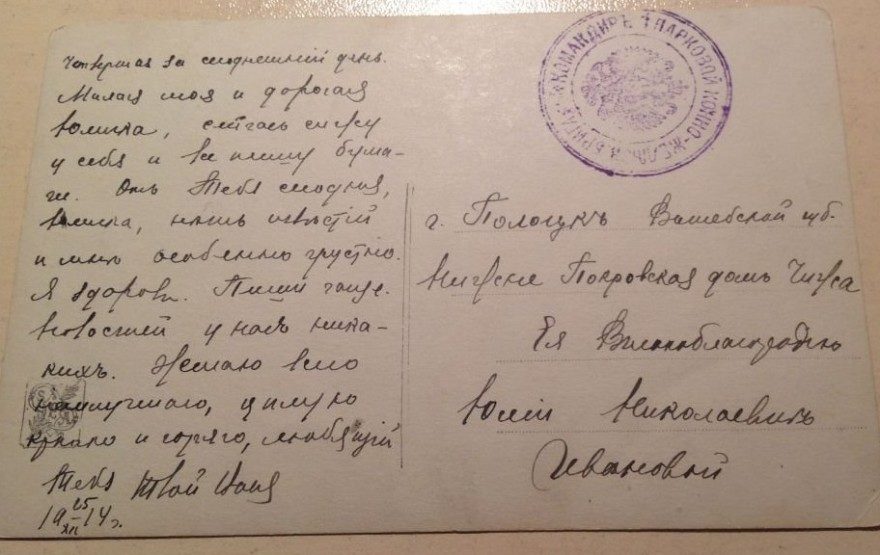 Четвертая за сегодняшній день.
Милая моя и дорогая
Юлика, сейчас сижу
у себя и все пишу бума-
ги. Отъ Тебя сегодня,
Юлика, нѣтъ извѣстій
и мнѣ особенно грустно.
Я здоровъ. Пиши чаще.
Новостей у насъ ника-
кихъ. Желаю всего
наилучшаго, цѣлую
крѣпко и горячо, любящій
Тебя Твой Ваня
19 25/XII 14 г.
КОМАНДИРЪ 1 ПАРКОВОЙ КОННО-ЖЕЛ. БРИГАДЫ
г. Полоцкъ Витебской губ.
Нижне Покровская домъ
Ея Высокоблагородію
Юліи Николаевнѣ
Ивановой